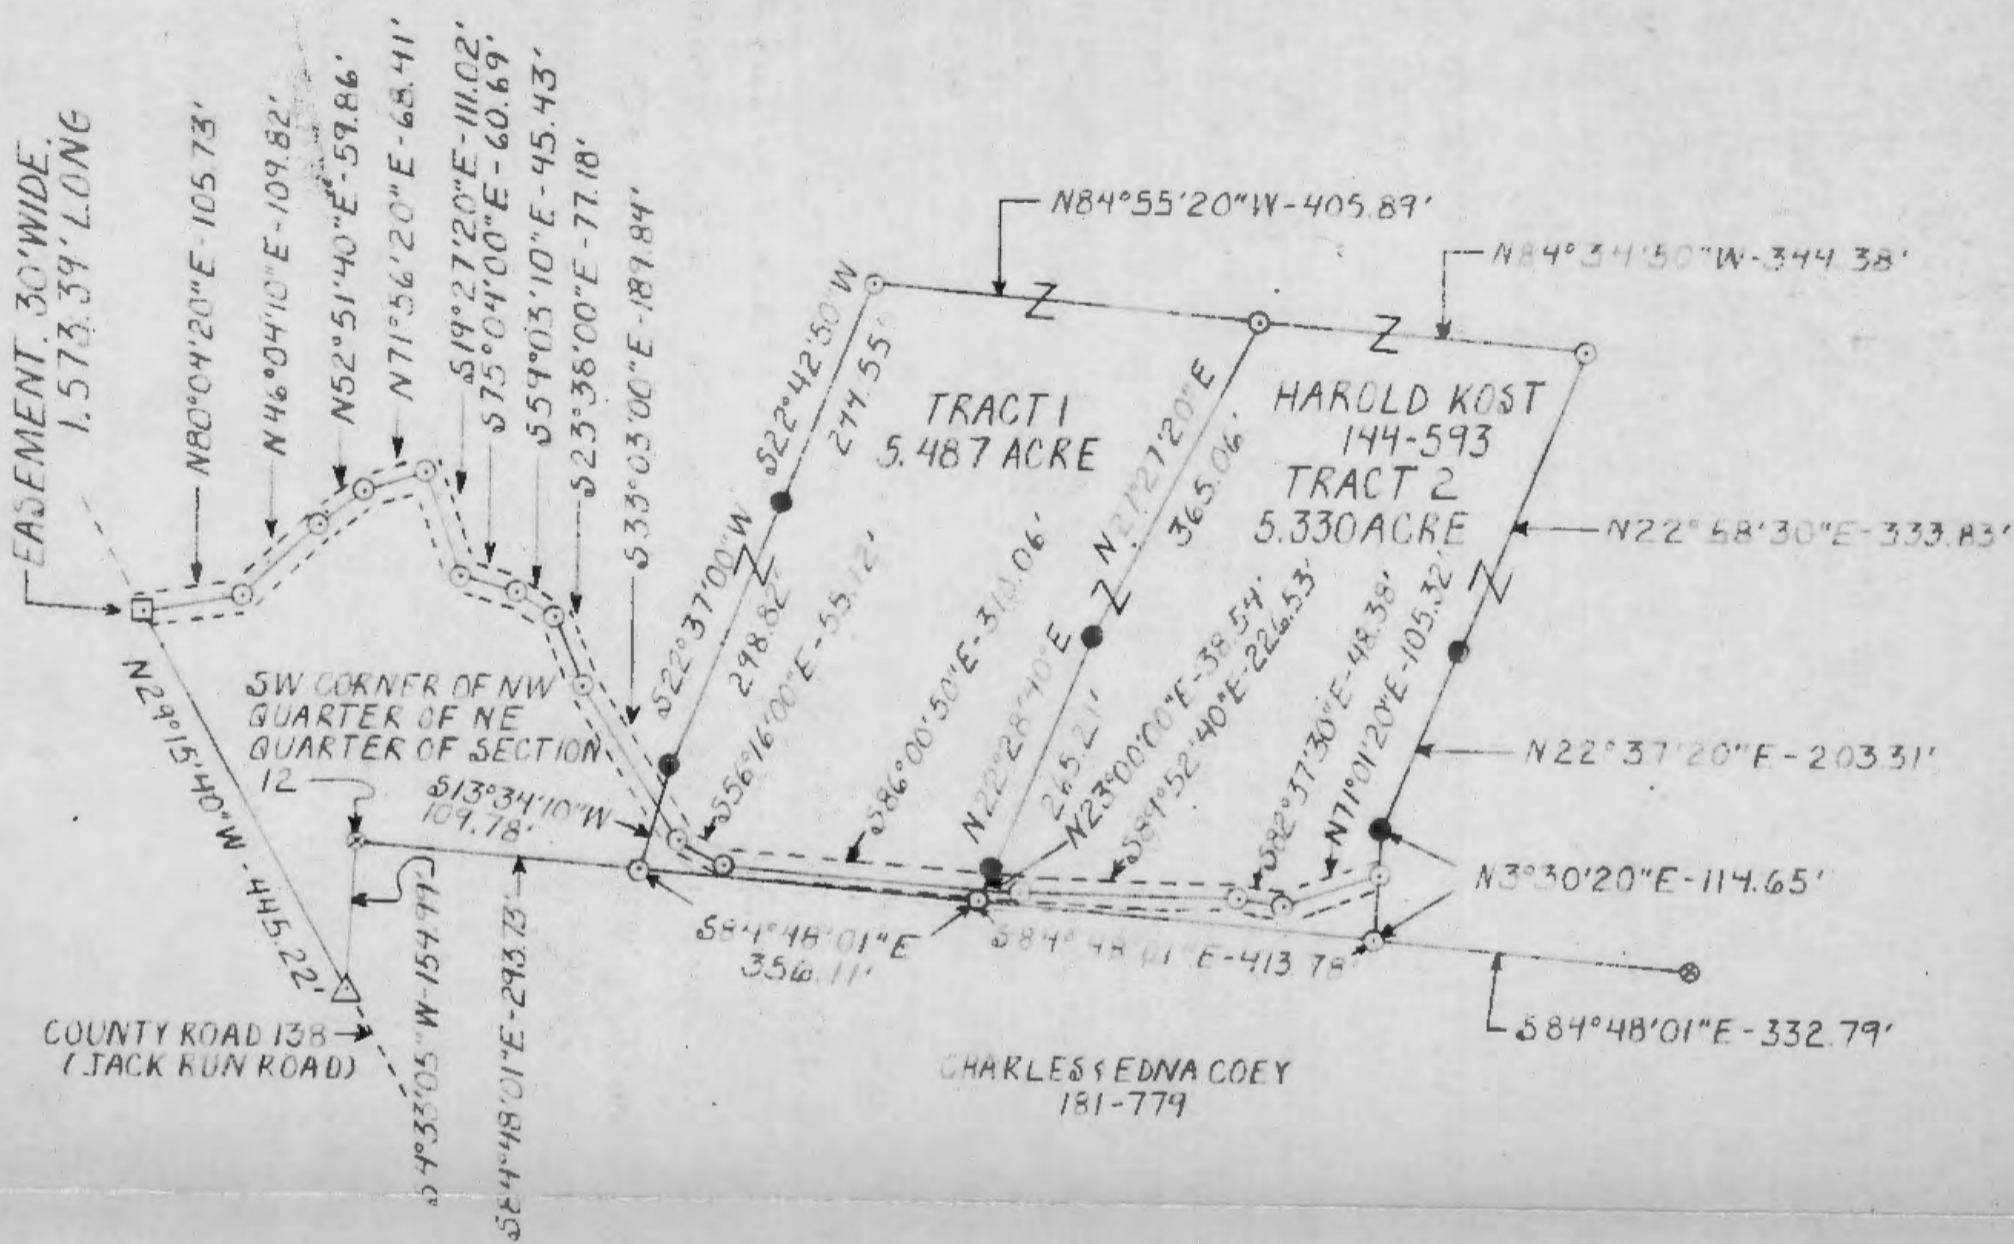 EASEMENT. 30' WIDE.
1,573.39' LONG
N80°04'20"E-105.73'
N46°04'10"E-109.82'
N52°51'40"E-59.86'
N71°56'20"E-68.41'
S19°27'20"E-111.02'
S75°04'00"E-60.69'
S59°03'10"E-45.43'
S23°38'00"E-77.18'
S33°03'00"E-189.84'
S22°42'50"W
244.55'
S22°37'00"W
298.82'
N84°55'20"W-405.89'
N84°34'50"W-344.38'
TRACT 1
5.487 ACRE
N21°27'20"E
365.06'
HAROLD KOST
144-593
TRACT 2
5.330 ACRE
N22°58'30"E-333.83'
S56°16'00"E-55.12'
S86°00'50"E-310.06'
N22°28'40"E
265.21'
N23°00'00"E-38.54'
S89°52'40"E-226.53'
S82°37'30"E-48.38'
N71°01'20"E-105.32'
N22°37'20"E-203.31'
N3°30'20"E-114.65'
N29°15'40"W-445.22'
SW CORNER OF NW
QUARTER OF NE
QUARTER OF SECTION
12
S13°34'10"W
109.78'
S84°48'01"E
356.11'
S84°48'01"E-413.78'
S84°48'01"E-332.79'
COUNTY ROAD 138
(JACK RUN ROAD)
S4°33'05"W-154.99'
S84°48'01"E-293.73'
CHARLES & EDNA COEY
181-779
Z
Z
Z
Z
Z